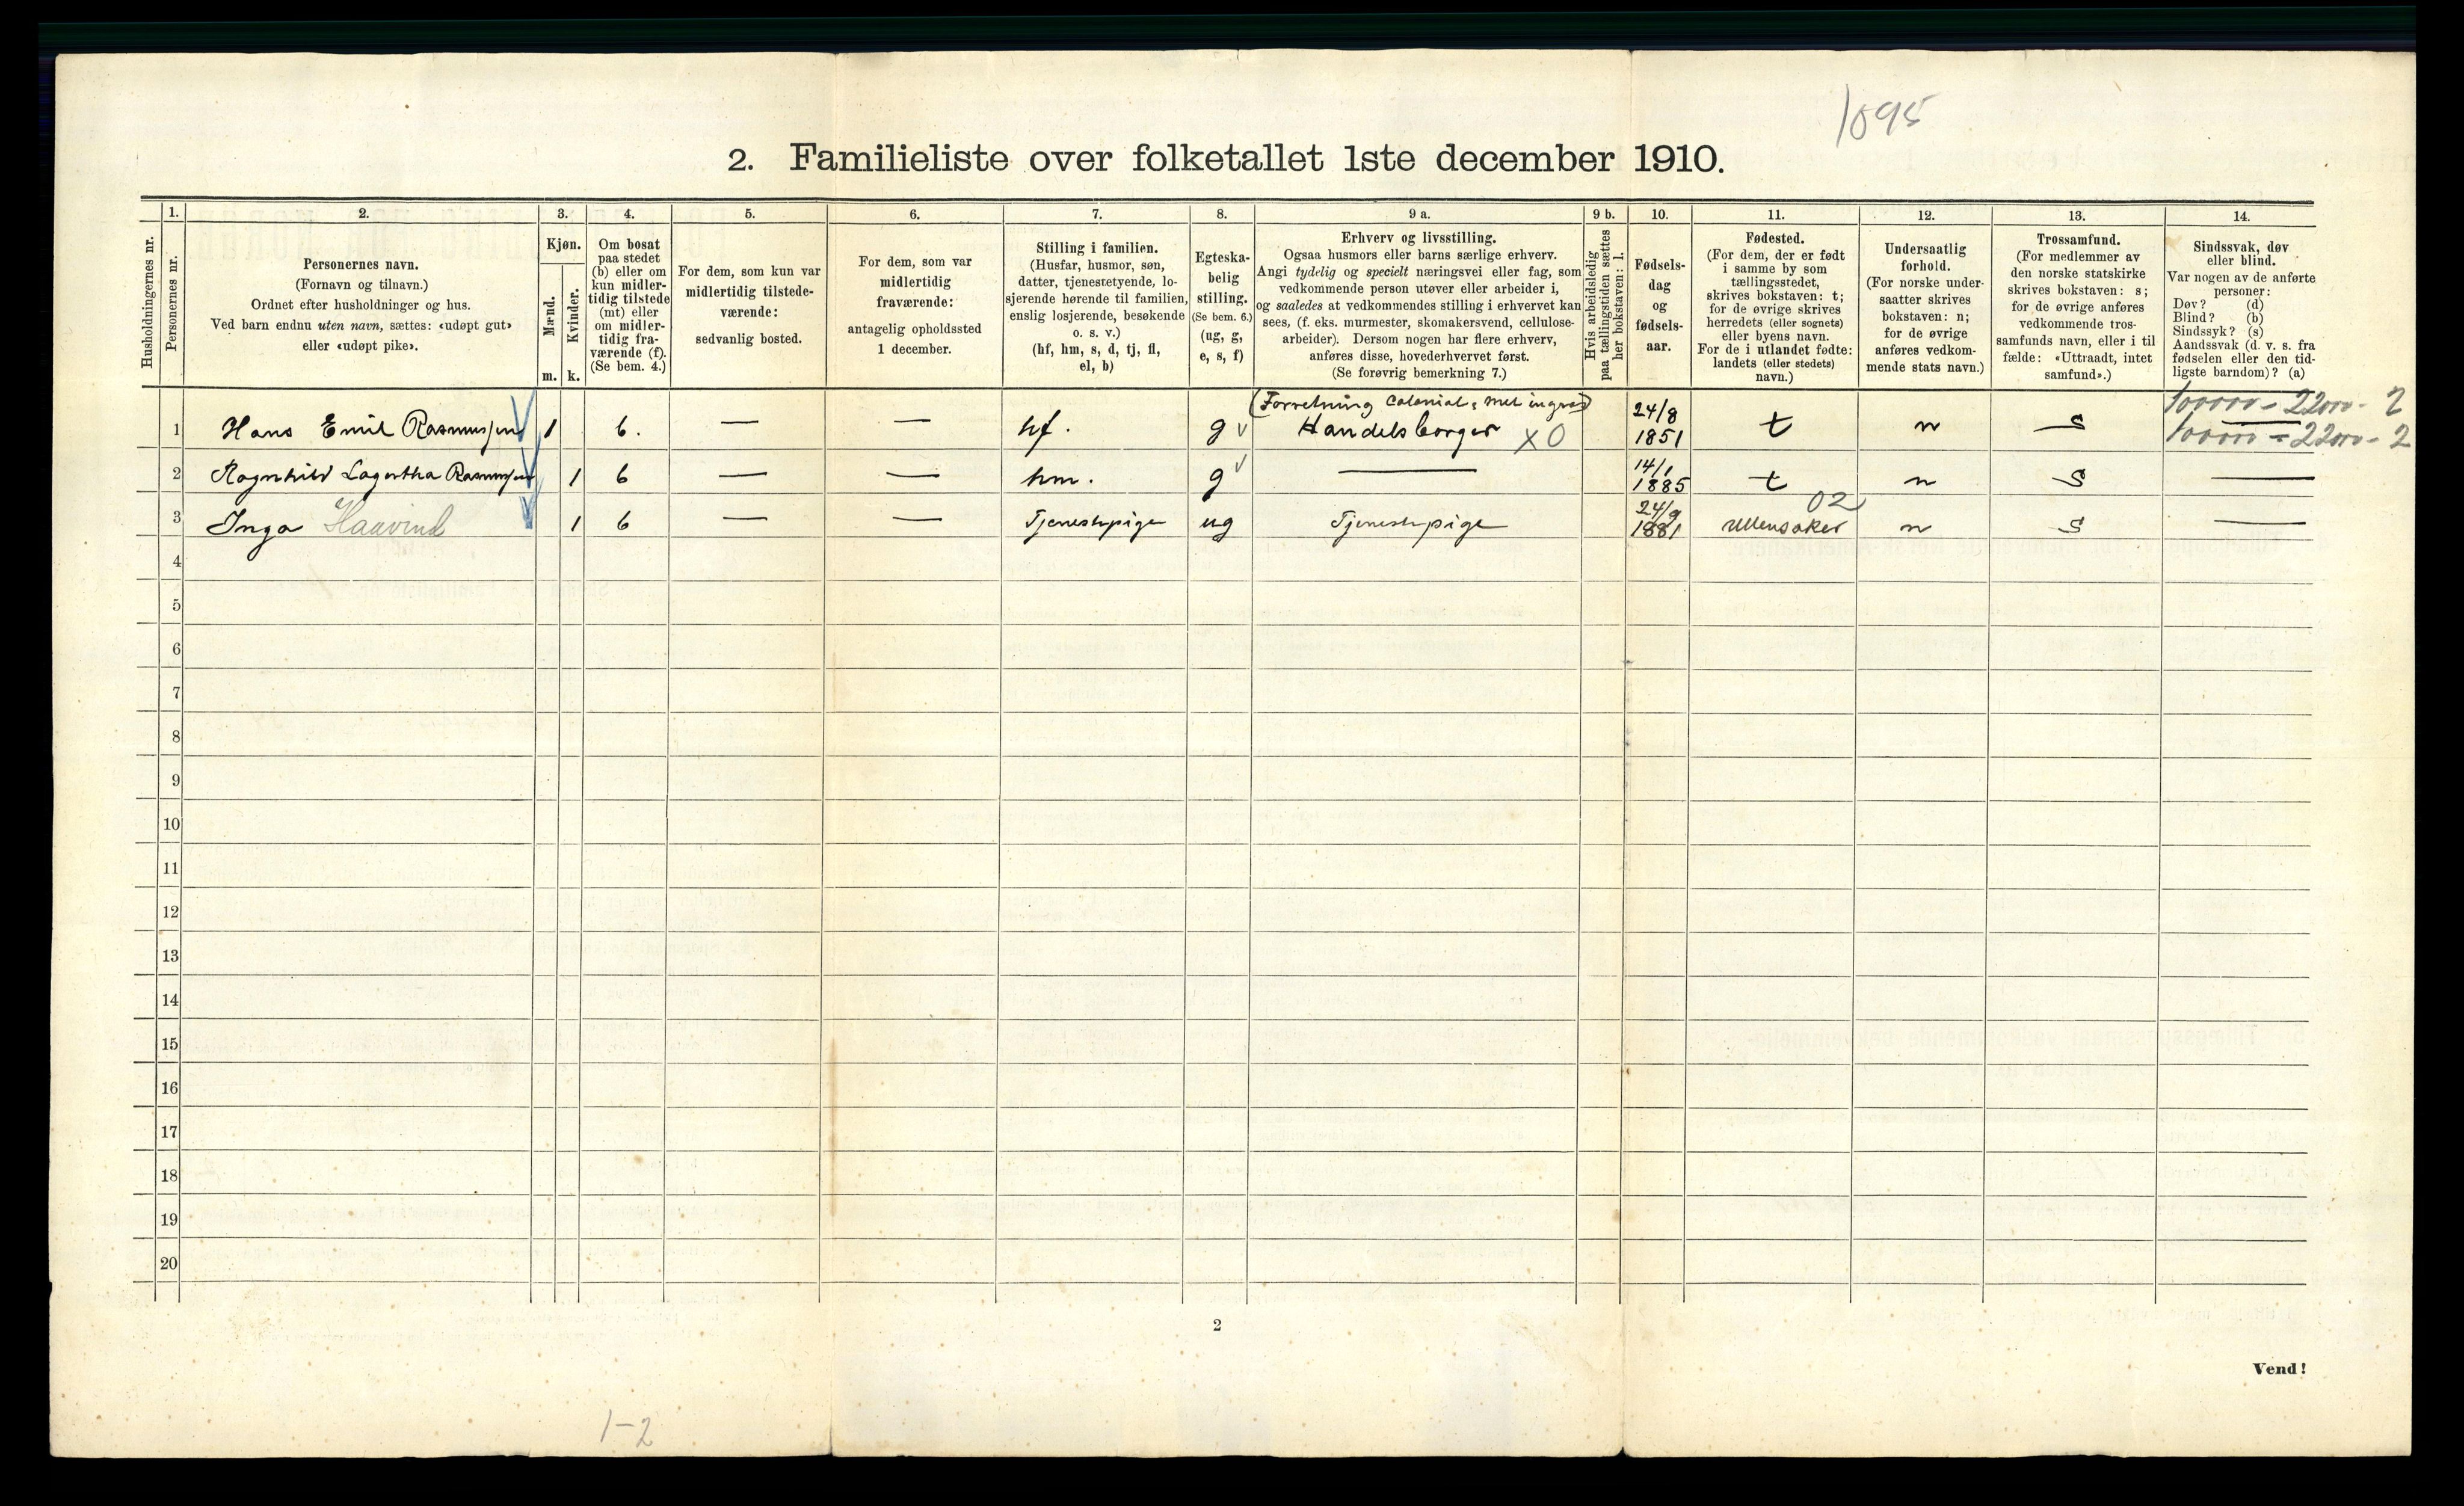 1095
2. Familieliste over folketallet 1ste december 1910.
Husholdningernes nr.
1.
Personernes nr.
2.
Personernes navn.
(Fornavn og tilnavn.)
Ordnet efter husholdninger og hus.
Ved barn endnu uten navn, sættes: «udøpt gut»
eller «udøpt pike».
3.
Kjøn.
Mænd.
Kvinder.
m. k.
4.
Om bosat
paa stedet
(b) eller om
kun midler-
tidig tilstede
(mt) eller
om midler-
tidig fra-
værende (f).
(Se bem. 4.)
5.
For dem, som kun var
midlertidig tilstede-
værende:
sedvanlig bosted.
6.
For dem, som var
midlertidig
fraværende:
antagelig opholdssted
1 december.
7.
Stilling i familien.
(Husfar, husmor, søn,
datter, tjenestetyende, lo-
sjerende hørende til familien,
enslig losjerende, besøkende
o. s. v.)
(hf, hm, s, d, tj, fl,
el, b)
8.
Egteska-
belig
stilling.
(Se bem. 6.)
(ug, g,
e, s, f)
9 a.
Erhverv og livsstilling.
Ogsaa husmors eller barns særlige erhverv.
Angi tydelig og specielt næringsvei eller fag, som
vedkommende person utøver eller arbeider i,
og saaledes at vedkommendes stilling i erhvervet kan
sees, (f. eks. murmester, skomakersvend, cellulose-
arbeider). Dersom nogen har flere erhverv,
anføres disse, hovederhvervet først.
(Se forøvrig bemerkning 7.)
9 b.
Hvis arbeidsledig
paa tællingstiden sættes
her bokstaven: l.
10.
Fødsels-
dag
og
fødsels-
aar.
11.
Fødested.
(For dem, der er født
i samme by som
tællingsstedet,
skrives bokstaven: t;
for de øvrige skrives
herredets (eller sognets)
eller byens navn.
For de i utlandet fødte:
landets (eller stedets)
navn.)
12.
Undersaatlig
forhold.
(For norske under-
saatter skrives
bokstaven: n;
for de øvrige
anføres vedkom-
mende stats navn.)
13.
Trossamfund.
(For medlemmer av
den norske statskirke
skrives bokstaven: s;
for de øvrige anføres
vedkommende tros-
samfunds navn, eller i til
fælde: «Uttraadt, intet
samfund».)
14.
Sindssvak, døv
eller blind.
Var nogen av de anførte
personer:
Døv? (d)
Blind? (b)
Sindssyk? (s)
Aandssvak (d. v. s. fra
fødselen eller den tid-
ligste barndom)? (a)
(Forretning Colonial,
1 Hans Emil Rasmussen 1 b. — — hf. g Handelsborger XO 24/8 1851 t n s
2 Ragnhild Lagertha Rasmussen 1 b — — hm. g — 14/1 1885 t n s —
02
3 Inga Haavind 1 b — — Tjenestepige ug Tjenestepige 24/9 1881 Ullensaker n s —
4
5
6
7
8
9
10
11
12
13
14
15
16
17
18
19
20
2
Vend!
1-2